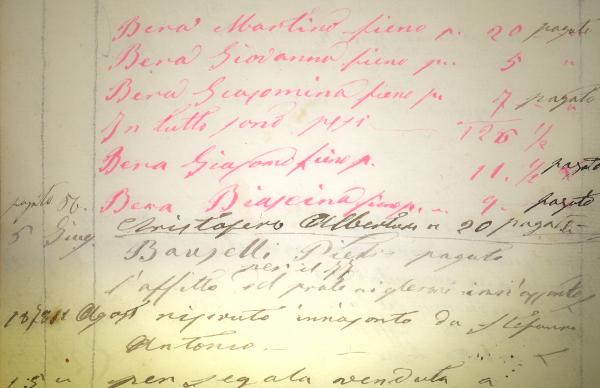 Bera Martino fieno p. 20 pagato
Bera Giovanna fieno p. 5 "
Bera Giacomina fieno p. 7 pagato
In tutto sono pesi 126 1/2
Bera Giacomo fieno p. 11. 1/2 pagato
Bera Biascina fieno p. 9 pagato
5 Giug. Cristofero Albertoni n 20 pagati
pagato
per il 77
l'affitto del prato
1878 11 Agost ricevuto in acconto da Stefanno
Antonio. —
15 " per segala venduta a